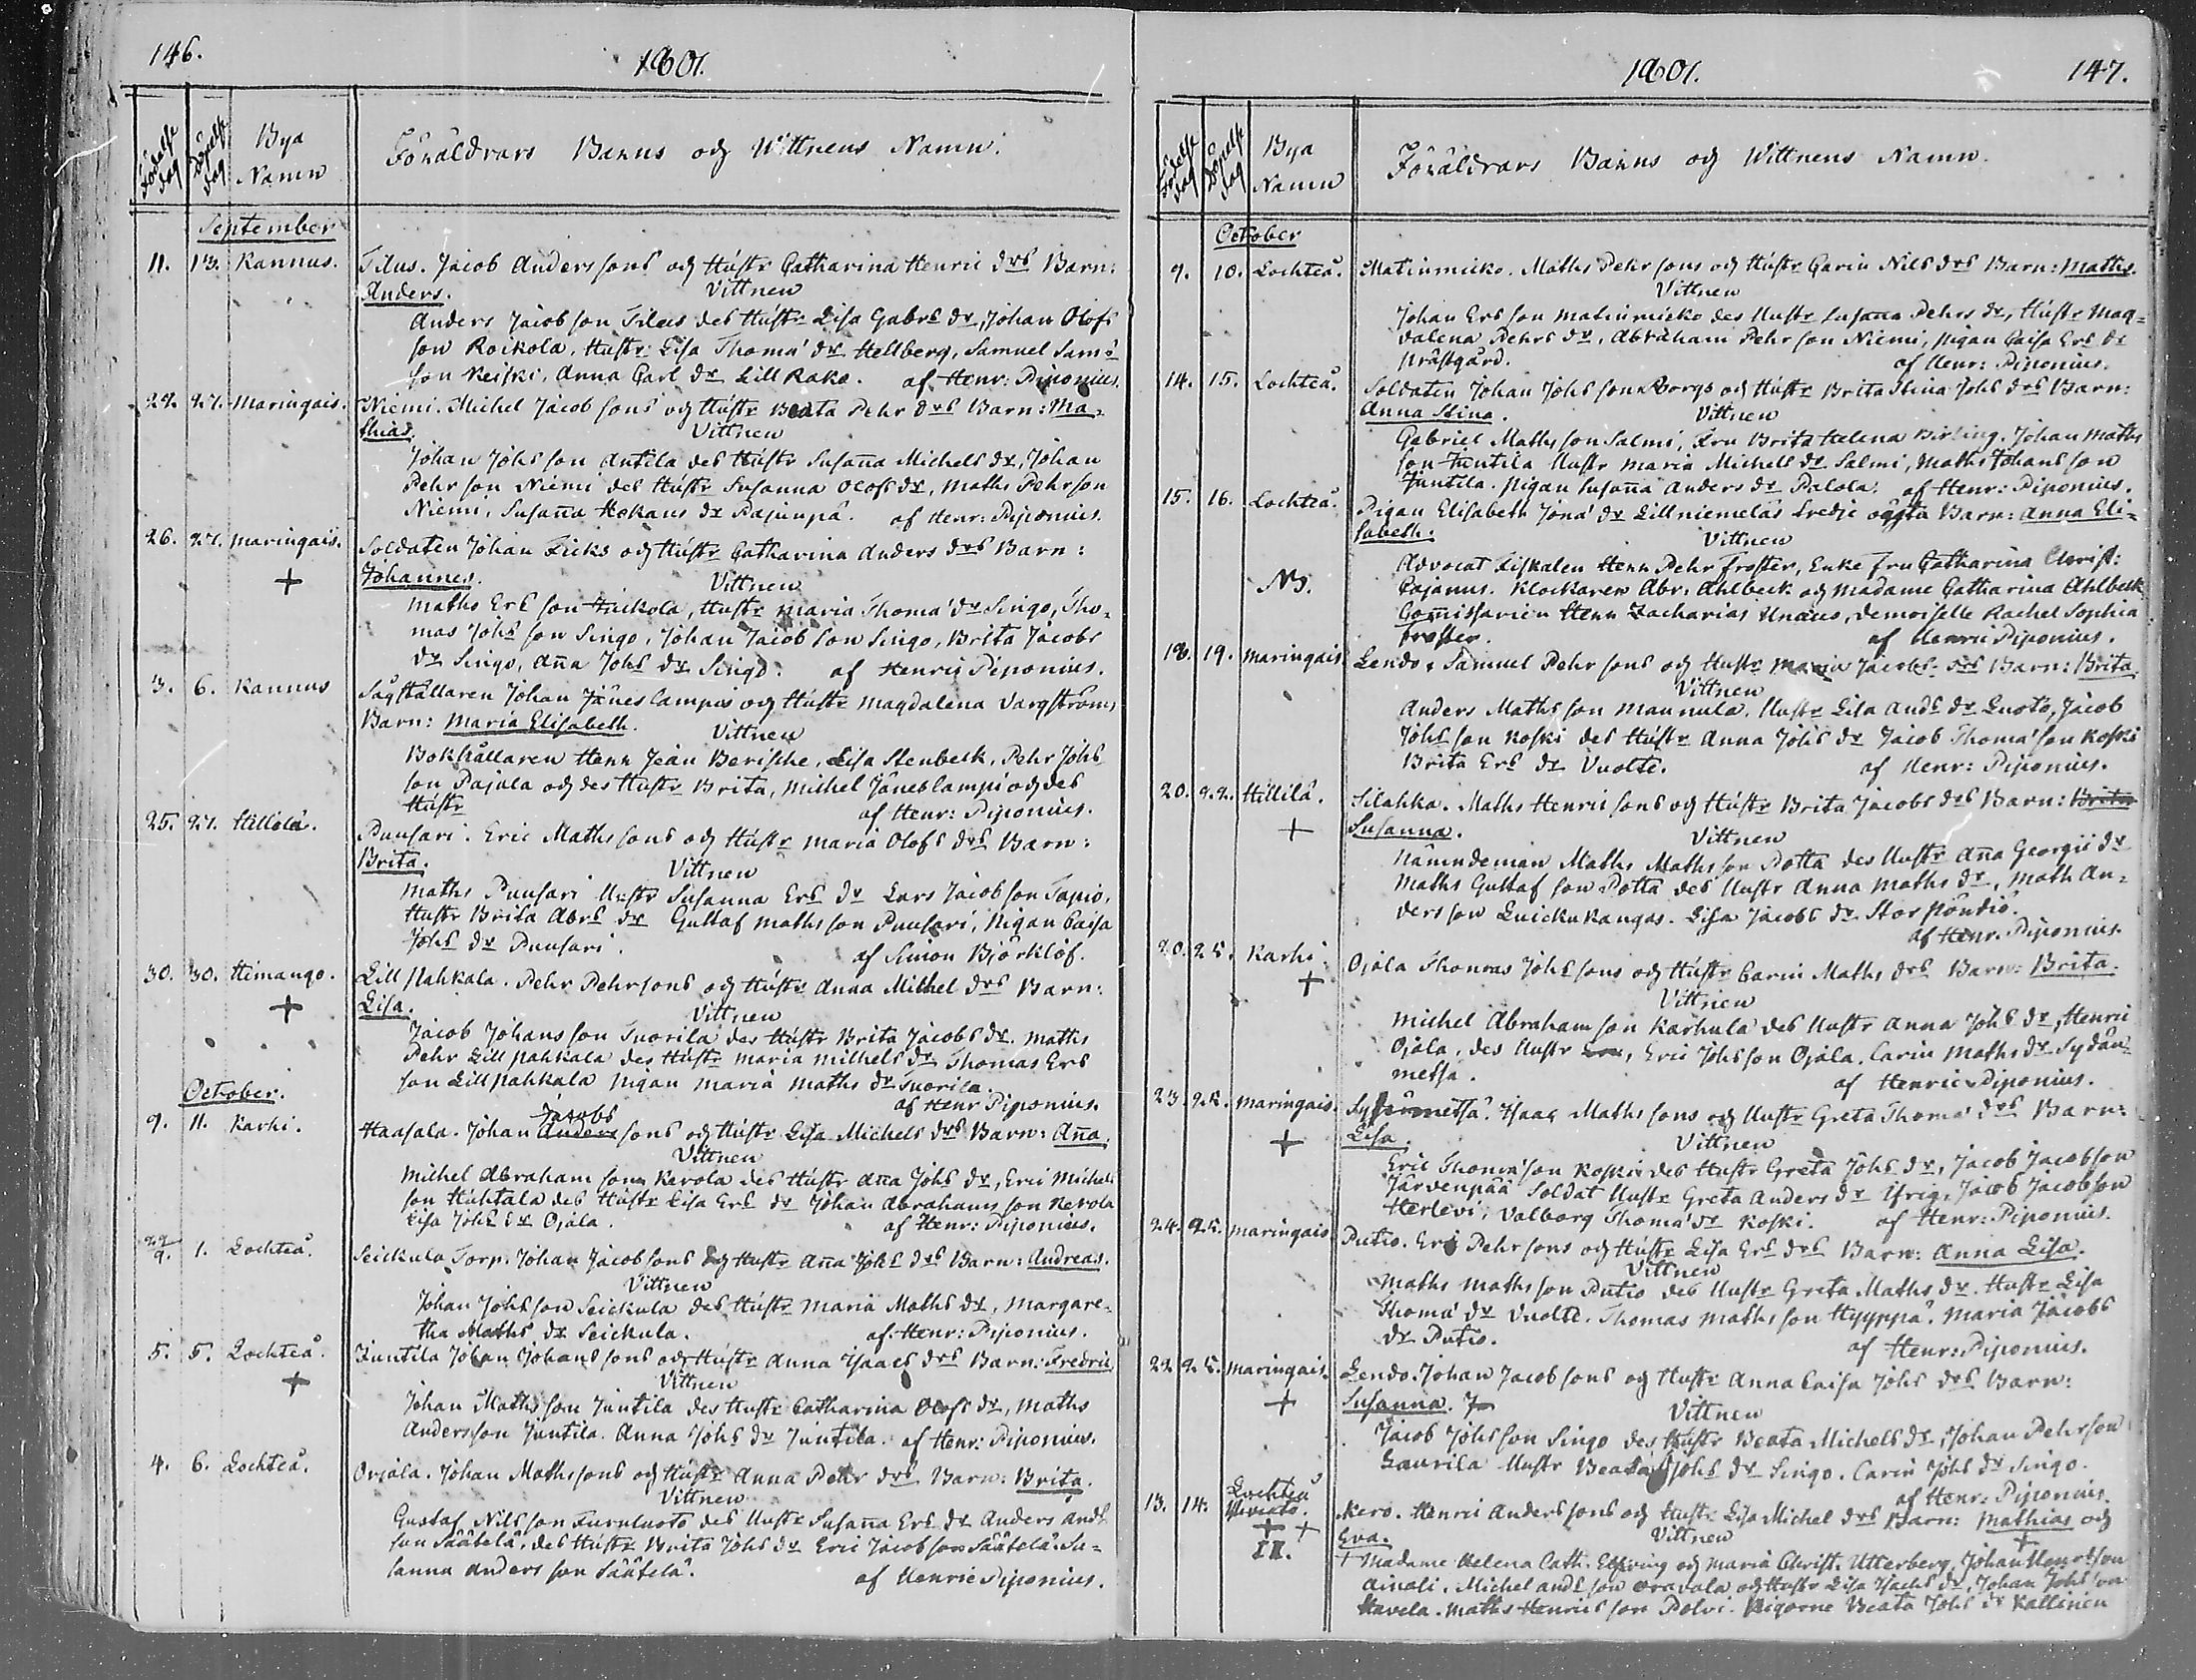 146.
1801.
Födelse dag Döpelse dag Bya Namn Föräldrars Barns och Wittnens Namn.
September
11. 13. Kannus. Tilus. Jacob Anderssons och Hustr Catharina Henric drs Barn:
Anders. Vittnen
Anders Jacobsson Tilus des Hustr Lisa Gabrs dr, Johan Olofs
son Roikola. Hustr: Lisa Thomæ dr Hellberg, Samuel Sams
son Keiski, Anna Carl dr Lill Kako. af Henr: Piponius.
22. 27. Maringais. Niemi. Michel Jacobsons och Hustr Beata Pehr drs Barn: Ma-
thias. Vittnen
Johan Johsson Antila des Hustr Susanna Michels dr, Johan
Pehrson Niemi des Hustr Susanna Olofs dr, Maths Pehrson
Niemi, Susanna Hokans dr Pajunpä. af Henr: Piponius.
26. 27. Maringais. Soldaten Johan Ficks och Hustr Catharina Anders drs Barn:
+ Johannes. Vittnen
Maths Ers son, Hustr Maria Thomæ dr Singo, Tho-
mas Johs son Singo, Johan Jacobson Singo, Brita Jacobs
dr Singo, Anna Johs dr Singo. af Henric Piponius.
3. 6. Kannus Sågställaren Johan Jäneslampis och Hustr Magdalena Vargströms
Barn: Maria Elisabeth. Vittnen
Bokhållaren Herr Jean Berische, Lisa Stenbeck, Pehr Johs
son Pajala och des Hustr Brita, Michel Jäneslampi och des
Hustr af Henr: Piponius.
25. 27. Hillilä. Puusari. Eric Mathssons och Hustr Maria Olofs drs Barn:
Brita. Vittnen
Maths Puusari Hustr Susanna Ers dr Lars Jacobson Tapio,
Hustr Brita Abrs dr Gustaf Mathsson Puusari, Pigan Caisa
Johs dr Puusari. af Simon Björklöf.
30. 30. Himango. Lill Pahkala. Pehr Pehrsons och Hustr Anna Michel drs Barn:
+ Lisa. Vittnen
Jacob Johansson Tuorila des Hustr Brita Jacobs dr. Maths
Pehr Lill Pahkala des Hustr Maria Michels dr Thomas Ers
son Lill Pahkala Pigan Maria Maths dr Tuorila.
af Henr Piponius.
October.
Jacobs
9. 11. Karhi. Haasala. Johan Anders sons och Hustr Lisa Michels drs Barn: Anna.
Vittnen
Michel Abrahamson Kerola des Hustr Anna Johs dr, Eric Michels
son Huhtala des Hustr Lisa Ers dr Johan Abrahamsson Kerola
Lisa Johs dr Ojala. af Henr: Piponius.
29/9. 1. Lochteå. Seickula Torp. Johan Jacobsons och Hustr Anna Johs drs Barn: Andreas.
Vittnen
Johan Johsson Seickula des Hustr Maria Maths dr, Margare-
tha Maths dr Seickula. af Henr: Piponius.
5. 5. Lochteå. Juntila Johan Johansons och Hustr Anna Isaacs drs Barn: Fredric.
+ Vittnen
Johan Mathsson Juntila des Hustr Catharina Olofs dr, Maths
Andersson Juntila. Anna Johs dr Juntila. af Henr: Piponius.
4. 6. Lochteå. Orjala. Johan Mathssons och Hustr Anna Pehr drs Barn: Brita.
Vittnen
Gustaf Nilsson Furuluoto des Hustr Susanna Ers dr Anders Ands
son Säätelä, des Hustr Brita Johs dr Eric Jacobson Säätelä. Su-
sanna Andersson Säätelä. af Henric Piponius.
1801. 147.
Födelse dag Döpelse dag Bya Namn Föräldrars Barns och Wittnens Namn.
October
9. 10. Lochteå. Matinmicko. Maths Pehrsons och Hustr Carin Nils drs Barn: Maths.
Vittnen
Johan Ersson Matinmicko des Hustr Susanna Pehrs dr, Hustr Mag-
dalena Pehrs dr, Abraham Pehrson Niemi, Pigan Caisa Ers dr
Prästgård. af Henr: Piponius.
14. 15. Lochteå. Soldaten Johan Johssons Borgs och Hustr Brita Stina Johs drs Barn:
Anna Stina. Vittnen
Gabriel Mathsson Salmi, Fru Brita Helena Birling, Johan Maths
son Juntila Hustr Maria Michels dr Salmi, Maths Johansson
Juntila. Pigan Susanna Anders dr Palola. af Henr: Piponius.
15. 16. Lochteå. Pigan Elisabeth Jonæ dr Lillniemeläs tredje oägta Barn: Anna Eli-
sabeth. Vittnen
Advocat Fiskalen Herr Pehr Froster, Enke Fru Catharina Christ:
NB. Cajanus. Klockaren Abr: Ahlbeck och Madame Catharina Ahlbeck
Comissarien Herr Zacharias Unæus, Demoiselle Rachel Sophia
Froster. af Henric Piponius.
18. 19. Maringais Lendo, Samuel Pehrsons och Hustr Maria Jacobs drs Barn: Brita.
Vittnen
Anders Mathsson Maunula. Hustr Lisa Ands dr Luoto, Jacob
Johsson Koski des Hustr Anna Johs dr Jacob Thomæson Koski
Brita Ers dr Vuolte. af Henr: Piponius.
20. 22. Hillilä. Silahka. Maths Henricsons och Hustr Brita Jacobs drs Barn: Brita
+ Susanna. Vittnen
Nämndeman Maths Mathsson Potta des Hustr Anna Georgii dr
Maths Gustafson Potta des Hustr Anna Maths dr, Math An-
dersson Luickukangas. Lisa Jacobs dr Storpöndiö.
af Henr. Piponius.
20. 25. Karhi. Ojala Thomas Johssons och Hustr Carin Maths drs Barn: Brita.
+ Vittnen
Michel Abrahamson Karhula des Hustr Anna Johs dr, Henric
Ojala, des Hustr, Eric Johsson Ojala. Carin Maths dr Sydän-
metsä. af Henric Piponius.
23. 25. Maringais. Sydänmetsä. Isaac Mathssons och Hustr Greta Thomæ drs Barn:
+ Lisa. Vittnen
Eric Thomæson Koski des Hustr Greta Johs dr, Jacob Jacobson
Järvenpää Soldat Hustr Greta Anders dr Ifrig, Jacob Jacobson
Herlevi, Valborg Thomæ dr Koski. af Henr: Piponius.
24. 25. Maringais. Putio. Eric Pehrsons och Hustr Lisa Ers drs Barn: Anna Lisa.
Vittnen
Maths Mathsson Putio des Hustr Greta Maths dr. Hustr Lisa
Thomæ dr Vuolte. Thomas Mathsson Hyyppä. Maria Jacobs
dr Putio. af Henr: Piponius.
22 25. Maringais. Lendo. Johan Jacobsons och Hustr Anna Caisa Johs drs Barn:
+ Susanna. Vittnen
Jacob Johsson Singo des Hustr Beata Michels dr, Johan Pehrson
Laurila Hustr Beata Johs dr Singo. Carin Johs dr Singo.
af Henr: Piponius.
13. 14. Lochteå Kero. Henric Anderssons och Hustr Lisa Michel drs Barn: Mathias och
+ + Eva. Vittnen +
II. + Madame Helena Cath. Elfving och Maria Christ. Utterberg, Johan Henrsson
Ainali. Michel Andsson Oravala och Hustr Lisa Isachs dr, Johan Johsson
Havela. Maths Henricsson Polvi. Pigorne Beata Johs dr Kallinen